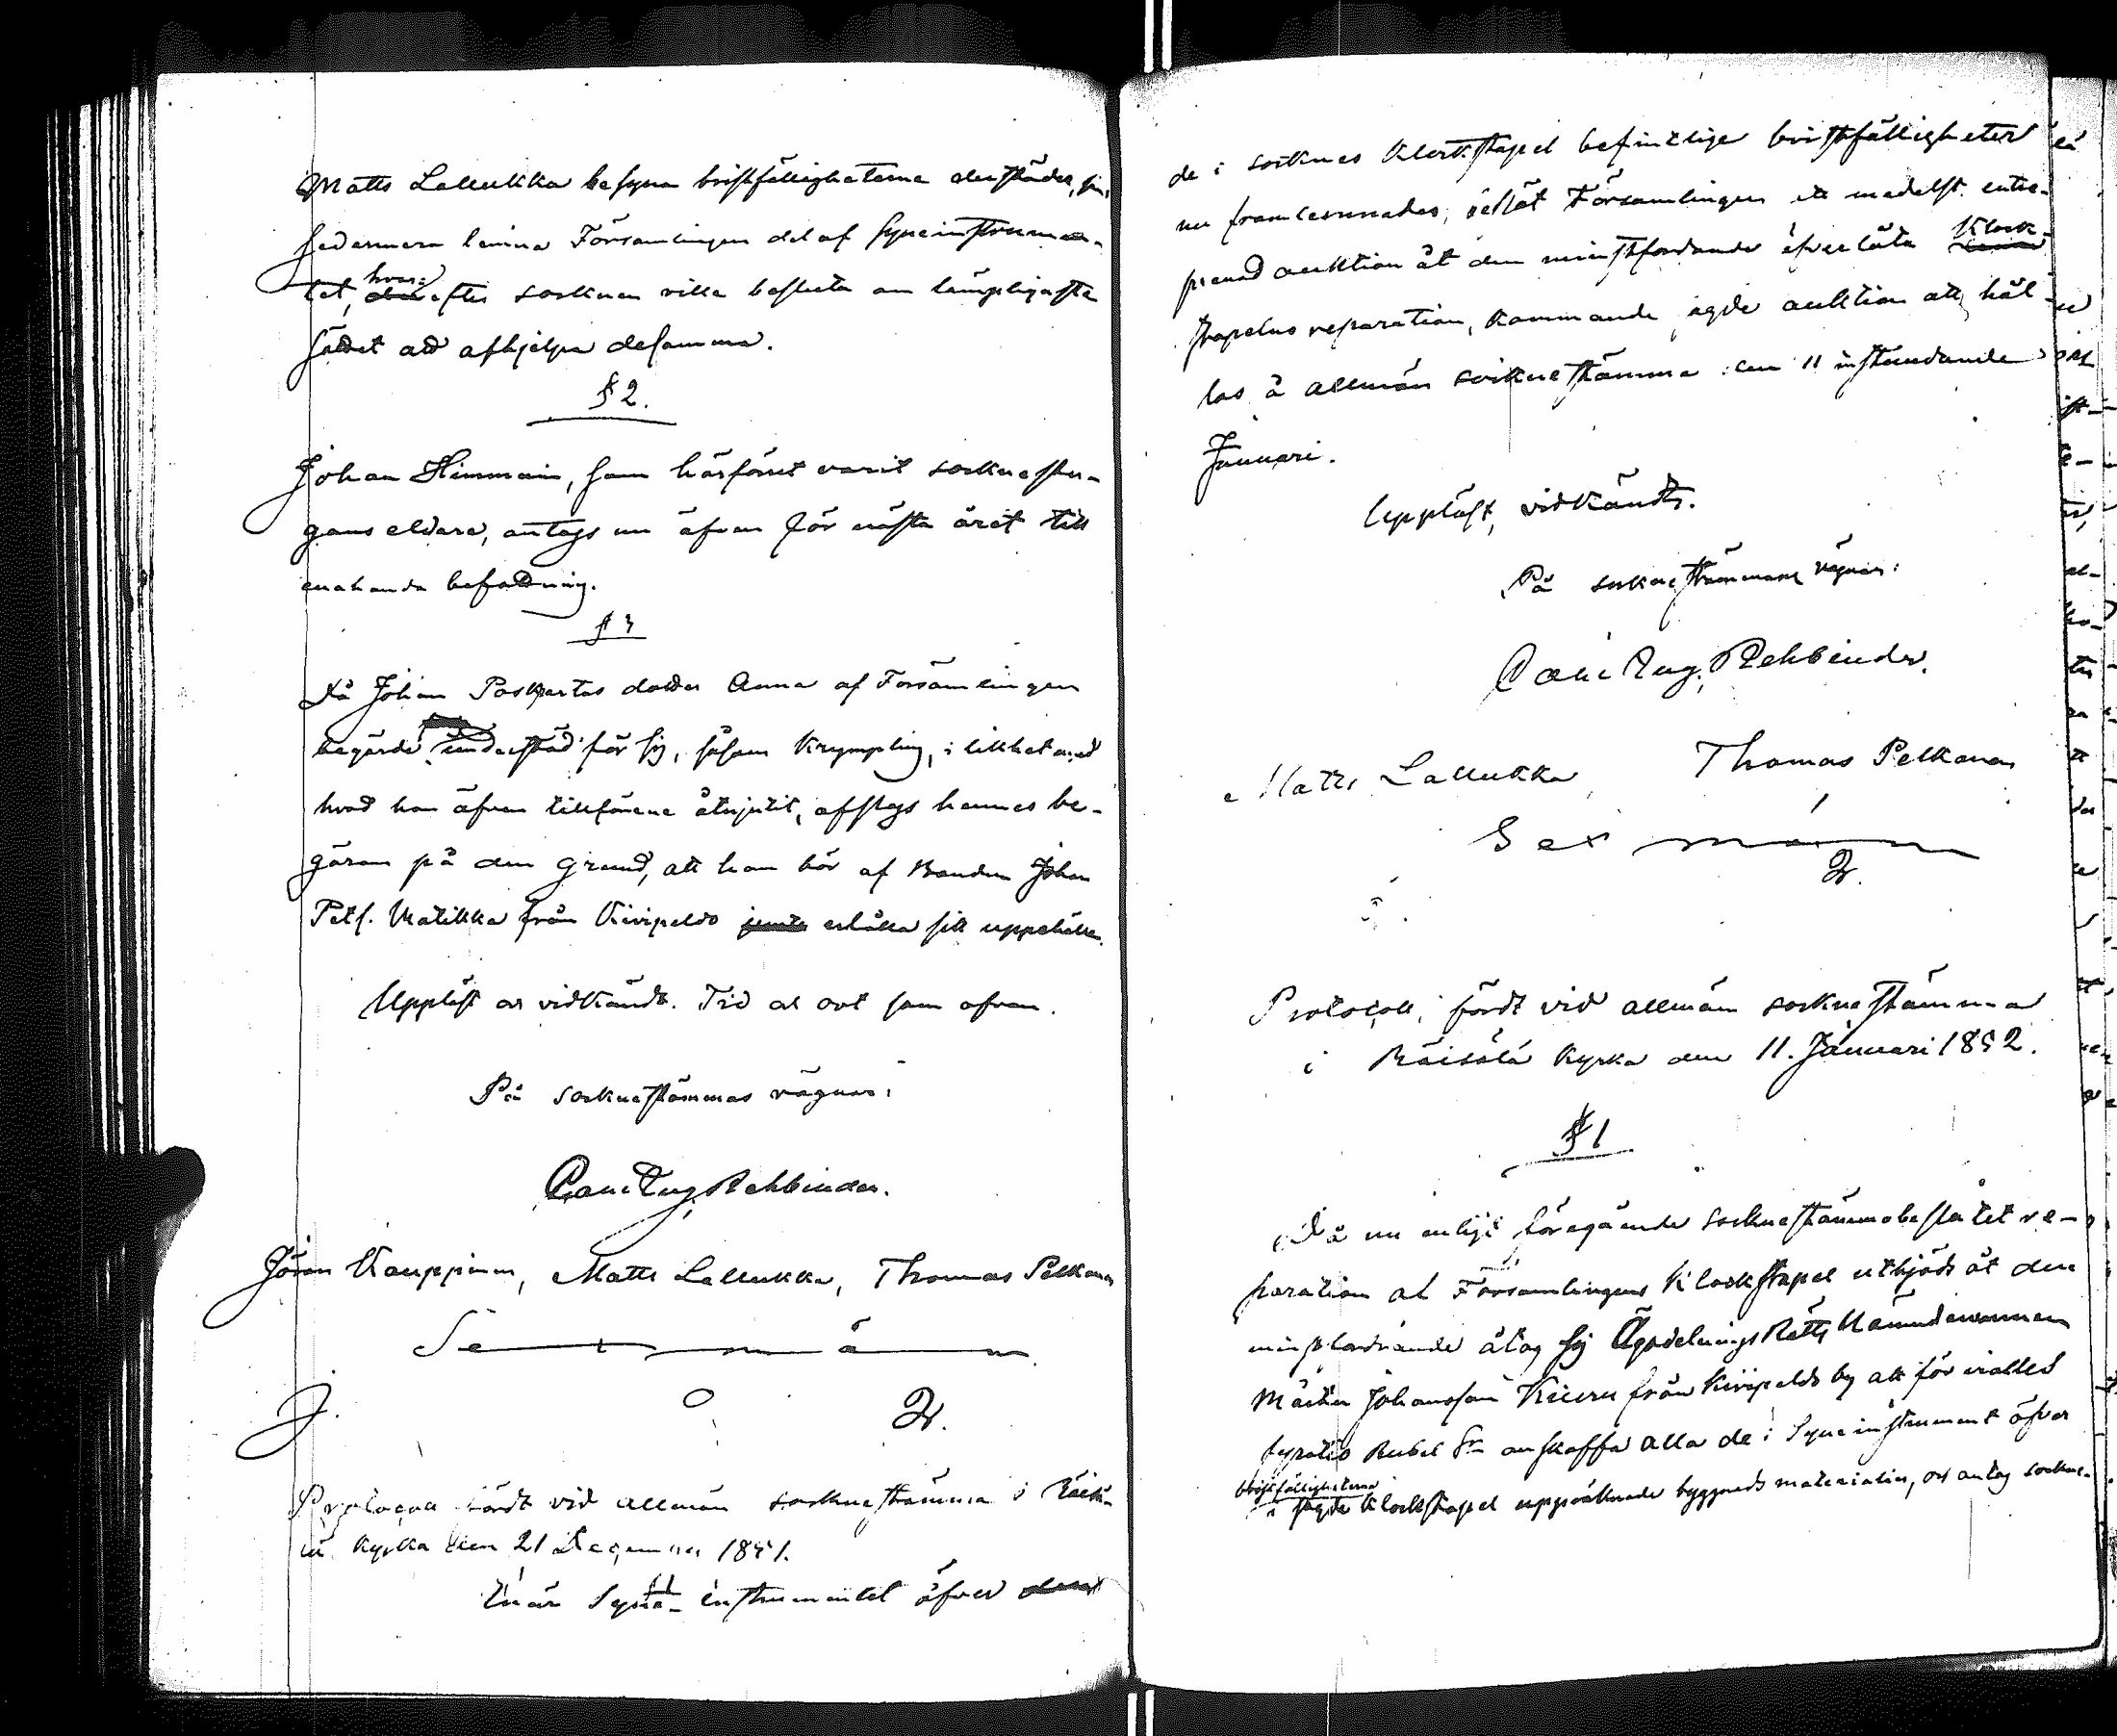 Matts Lallukka besyna bristfälligheterna derstädes,
sedermera lemna Församlingen del af Syneinstrumen-
tet, hvar-
efter socknen ville besluta om lämpligaste
sättet att afhjelpa desamma.
§ 2.
Johan Himmain, som härförut varit socknestu-
gans eldare, antogs nu äfven för nästa året till
enahanda befattning.
§ 3
Då Johan Paskartas dotter Anna af Församlingen
begärde understöd för sig, såsom Krympling, i likhet med
hvad hon äfven tillförene åtnjutit, afslogs hennes be-
gäran på den grund, att hon bör af Bonden Johan
Petf. Matikka från Kivipeldo erhålla sitt uppehälle.
Uppläst och vidkändt. Tid och ort som ofvan.
På socknestämmas vägnar:
Carl Aug. Rehbinder.
Jöran Kauppinen, Matts Lallukka, Thomas Pelkonen
Sexmän
Protocoll fördt vid allmän socknestämma i Räisä-
lä Kyrka den 21 December 1851.
Enär Syna-instrumentet öfver
de i socknes Klockstapel befintlige bristfälligheter
nu framlemnades, Församlingen medelst entre-
prenad auktion åt den minstfordrande öfverlåta Klock-
stapelns reparation, kommande auktion att hål-
las å allmän sockne stämma den 11 inståundande
Januari.
Uppläst, vidkändt.
På sockne stämmans vägnar:
Carl Aug. Rehbinder.
Matts Lallukka Thomas Pelkonen
Sexmän
Protocoll, fördt vid allmän sockne stämma
i Räisälä Kyrka den 11. Januari 1852.
§ 1
Då nu enligt föregående sockne stämmobeslutet re-
paration af Församlingens Klockstapel utbjöds åt den
minstfordrande åtog sig Ägodelnings Rätts Nämndemannen
Mårten Johansson Kiiveru från Kivipeldo by att för
Rubel Sr anskaffa alla de i Syneinstrument öfver
bristfälligheterna
i sagde Klockstapel uppräknade byggnads materialier, och antog sockne-